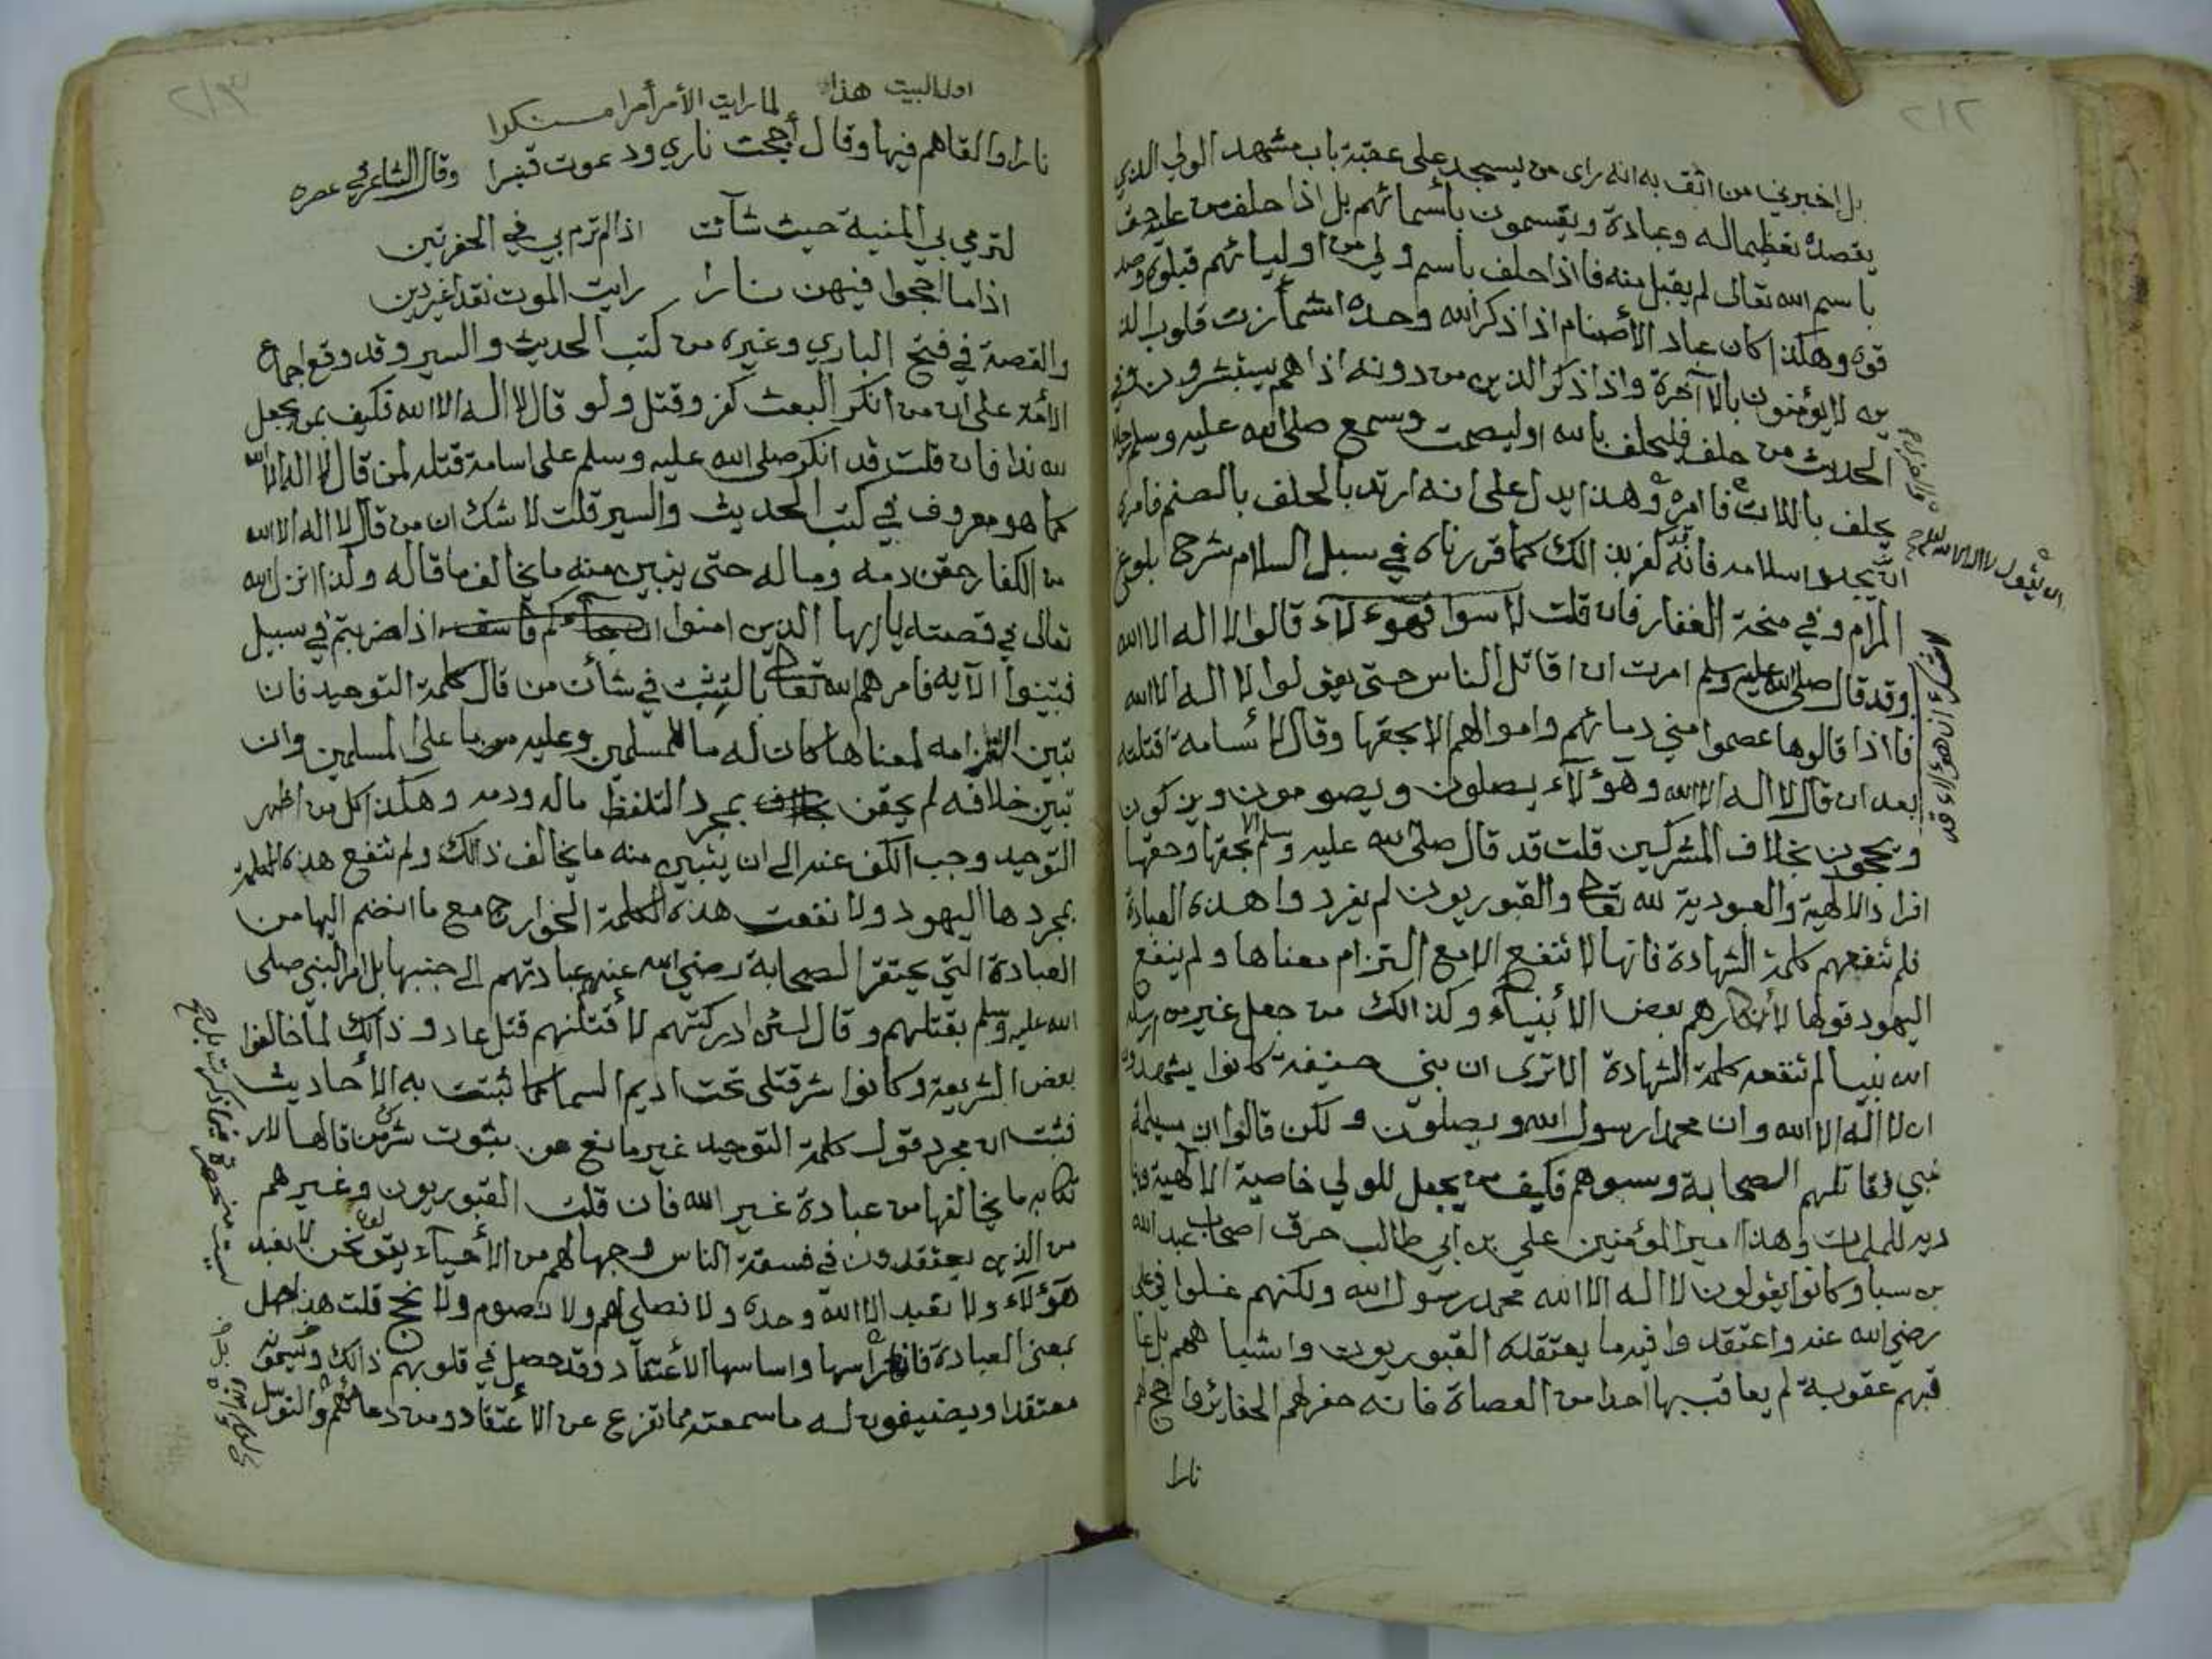 ٢١٢
بل اخبرني من اثق به انه راى من يسجد على عتبة باب مشهد الولي الذي
يقصده تعظيما له وعبادة ويقسمون بأسمائهم بل اذا حلف من عليه حق
باسم الله تعالى لم يقبل منه فاذا حلف باسم ولي من اوليائهم قبلوه وصد
قوه وهكذا كان عباد الأصنام اذا ذكر الله وحده اشمأزت قلوب الذ
ين لا يؤمنون بالآخرة واذا ذكر الذين من دونه اذا هم يستبشرون وفي
الحديث من حلف فليحلف بالله او ليصمت وسمع صلى الله عليه وسلم رجلا
يحلف باللات فامره وهذا يدل على انه ارتد بالحلف بالصنم فامره
ان يجدد اسلامه فانه قد كفر بذالك كما قررناه في سبل السلام شرح بلوغ
المرام وفي منحة الغفار فان قلت لا سوا فهؤلاء قالوا لا اله الا الله
وقد قال صلى الله عليه وسلم امرت ان اقاتل الناس حتى يقولوا لا اله الا الله
فاذا قالوها عصموا مني دمائهم واموالهم الا بحقها وقال لأسامة اقتلته
بعد ان قال لا اله الا الله وهؤلآء يصلون ويصومون ويزكون
ويحجون بخلاف المشركين قلت قد قال صلى الله عليه وسلم الا بحقها وحقها
افراد الالهية والعبودية لله تعالى والقبوريون لم يفردوا هذه العبادة
فلم تنفعهم كلمة الشهادة فانها لا تنفع الا مع التزام معناها ولم ينفع
اليهود قولها لأنكارهم بعض الأنبيآء وكذالك من جعل غير من ارسله
الله نبيا لم تنفعه كلمة الشهادة الا ترى ان بني حنيفة كانوا يشهدون
ان لا اله الا الله وان محمدا رسول الله ويصلون ولكن قالوا ان مسيلمة
نبي فقاتلهم الصحابة وسبوهم فكيف من يجعل للولي خاصية الالهية وينا
ديه للملمات وهذا امير المؤمنين علي بن ابي طالب حرق اصحاب عبد الله
بن سبا وكانوا يقولون لا اله الا الله محمد رسول الله ولكنهم غلوا في علي
رضي الله عنه واعتقدوا فيه ما يعتقده القبوريون واشباههم بل عا
قبهم عقوبة لم يعاقب بها احدا من العصاة فانه حفر لهم الحفائر واجج لهم
نارا
ان يقول لا اله الا الله
٢١٣
اول البيت هذا لما رايت الأمر أمرا مستنكرا
نارا والقاهم فيها وقال أججت ناري ودعوت قنبرا وقال الشاعر في عصره
لترمي بي المنية حيث شآئت اذا لم ترم بي في الحفرتين
اذا ما اججوا فيهن نارا رايت الموت نقدا غير دين
والقصة في فتح الباري وغيره من كتب الحديث والسير وقد وقع اجماع
الأمة على ان من انكر البعث كفر وقتل ولو قال لا اله الا الله فكيف بمن يجعل
لله ندا فان قلت قد انكر صلى الله عليه وسلم على اسامة قتله لمن قال لا اله الا الله
كما هو معروف في كتب الحديث والسير قلت لا شك ان من قال لا اله الا الله
من الكفار حقن دمه وماله حتى يتبين منه ما يخالف ما قاله ولذا انزل الله
تعالى في قصته ياايها الذين امنوا ان جآءكم فاسق اذا ضربتم في سبيل
فتبينوا الآيه فامرهم الله تعالى بالتثبت في شأن من قال كلمة التوحيد فان
تبين التزامه لمعناها كان له ما للمسلمين وعليه ما على المسلمين وان
تبين خلافه لم يحقن بمجرد التلفظ ماله ودمه وهكذا كل من اظهر
التوحيد وجب الكف عنه الى ان يتبين منه ما يخالف ذالك ولم تنفع هذه الكلمة
بمجردها اليهود ولا نفعت هذه الكلمة الخوارج مع ما انضم اليها من
العبادة التي يحتقر الصحابة رضي الله عنهم عبادتهم الى جنبها بل امر النبي صلى
الله عليه وسلم بقتلهم وقال لئن ادركتهم لأقتلنهم قتل عاد وذالك لما خالفوا
بعض الشريعة وكانوا شر قتلى تحت اديم السما كما ثبتت به الأحاديث
فثبت ان مجرد قول كلمة التوحيد غير مانع من ثبوت شرك من قالها لار
تكابه ما يخالفها من عبادة غير الله فان قلت القبوريون وغيرهم
من الذين يعتقدون في فسقة الناس وجهالهم من الأحياء يقولون نحن لا نعبد
هؤلآء ولا نعبد الا الله وحده ولا نصلي لهم ولا نصوم ولا نحج قلت هذا جهل
بمعنى العبادة فانها راسها واساسها الأعتقاد وقد حصل في قلوبهم ذالك ويسمونه
معتقدا ويضيفون له ما سمعته مما تفرع عن الأعتقاد ومن دعائهم والتوسل
ليست منحصرة فيما ذكرت بل